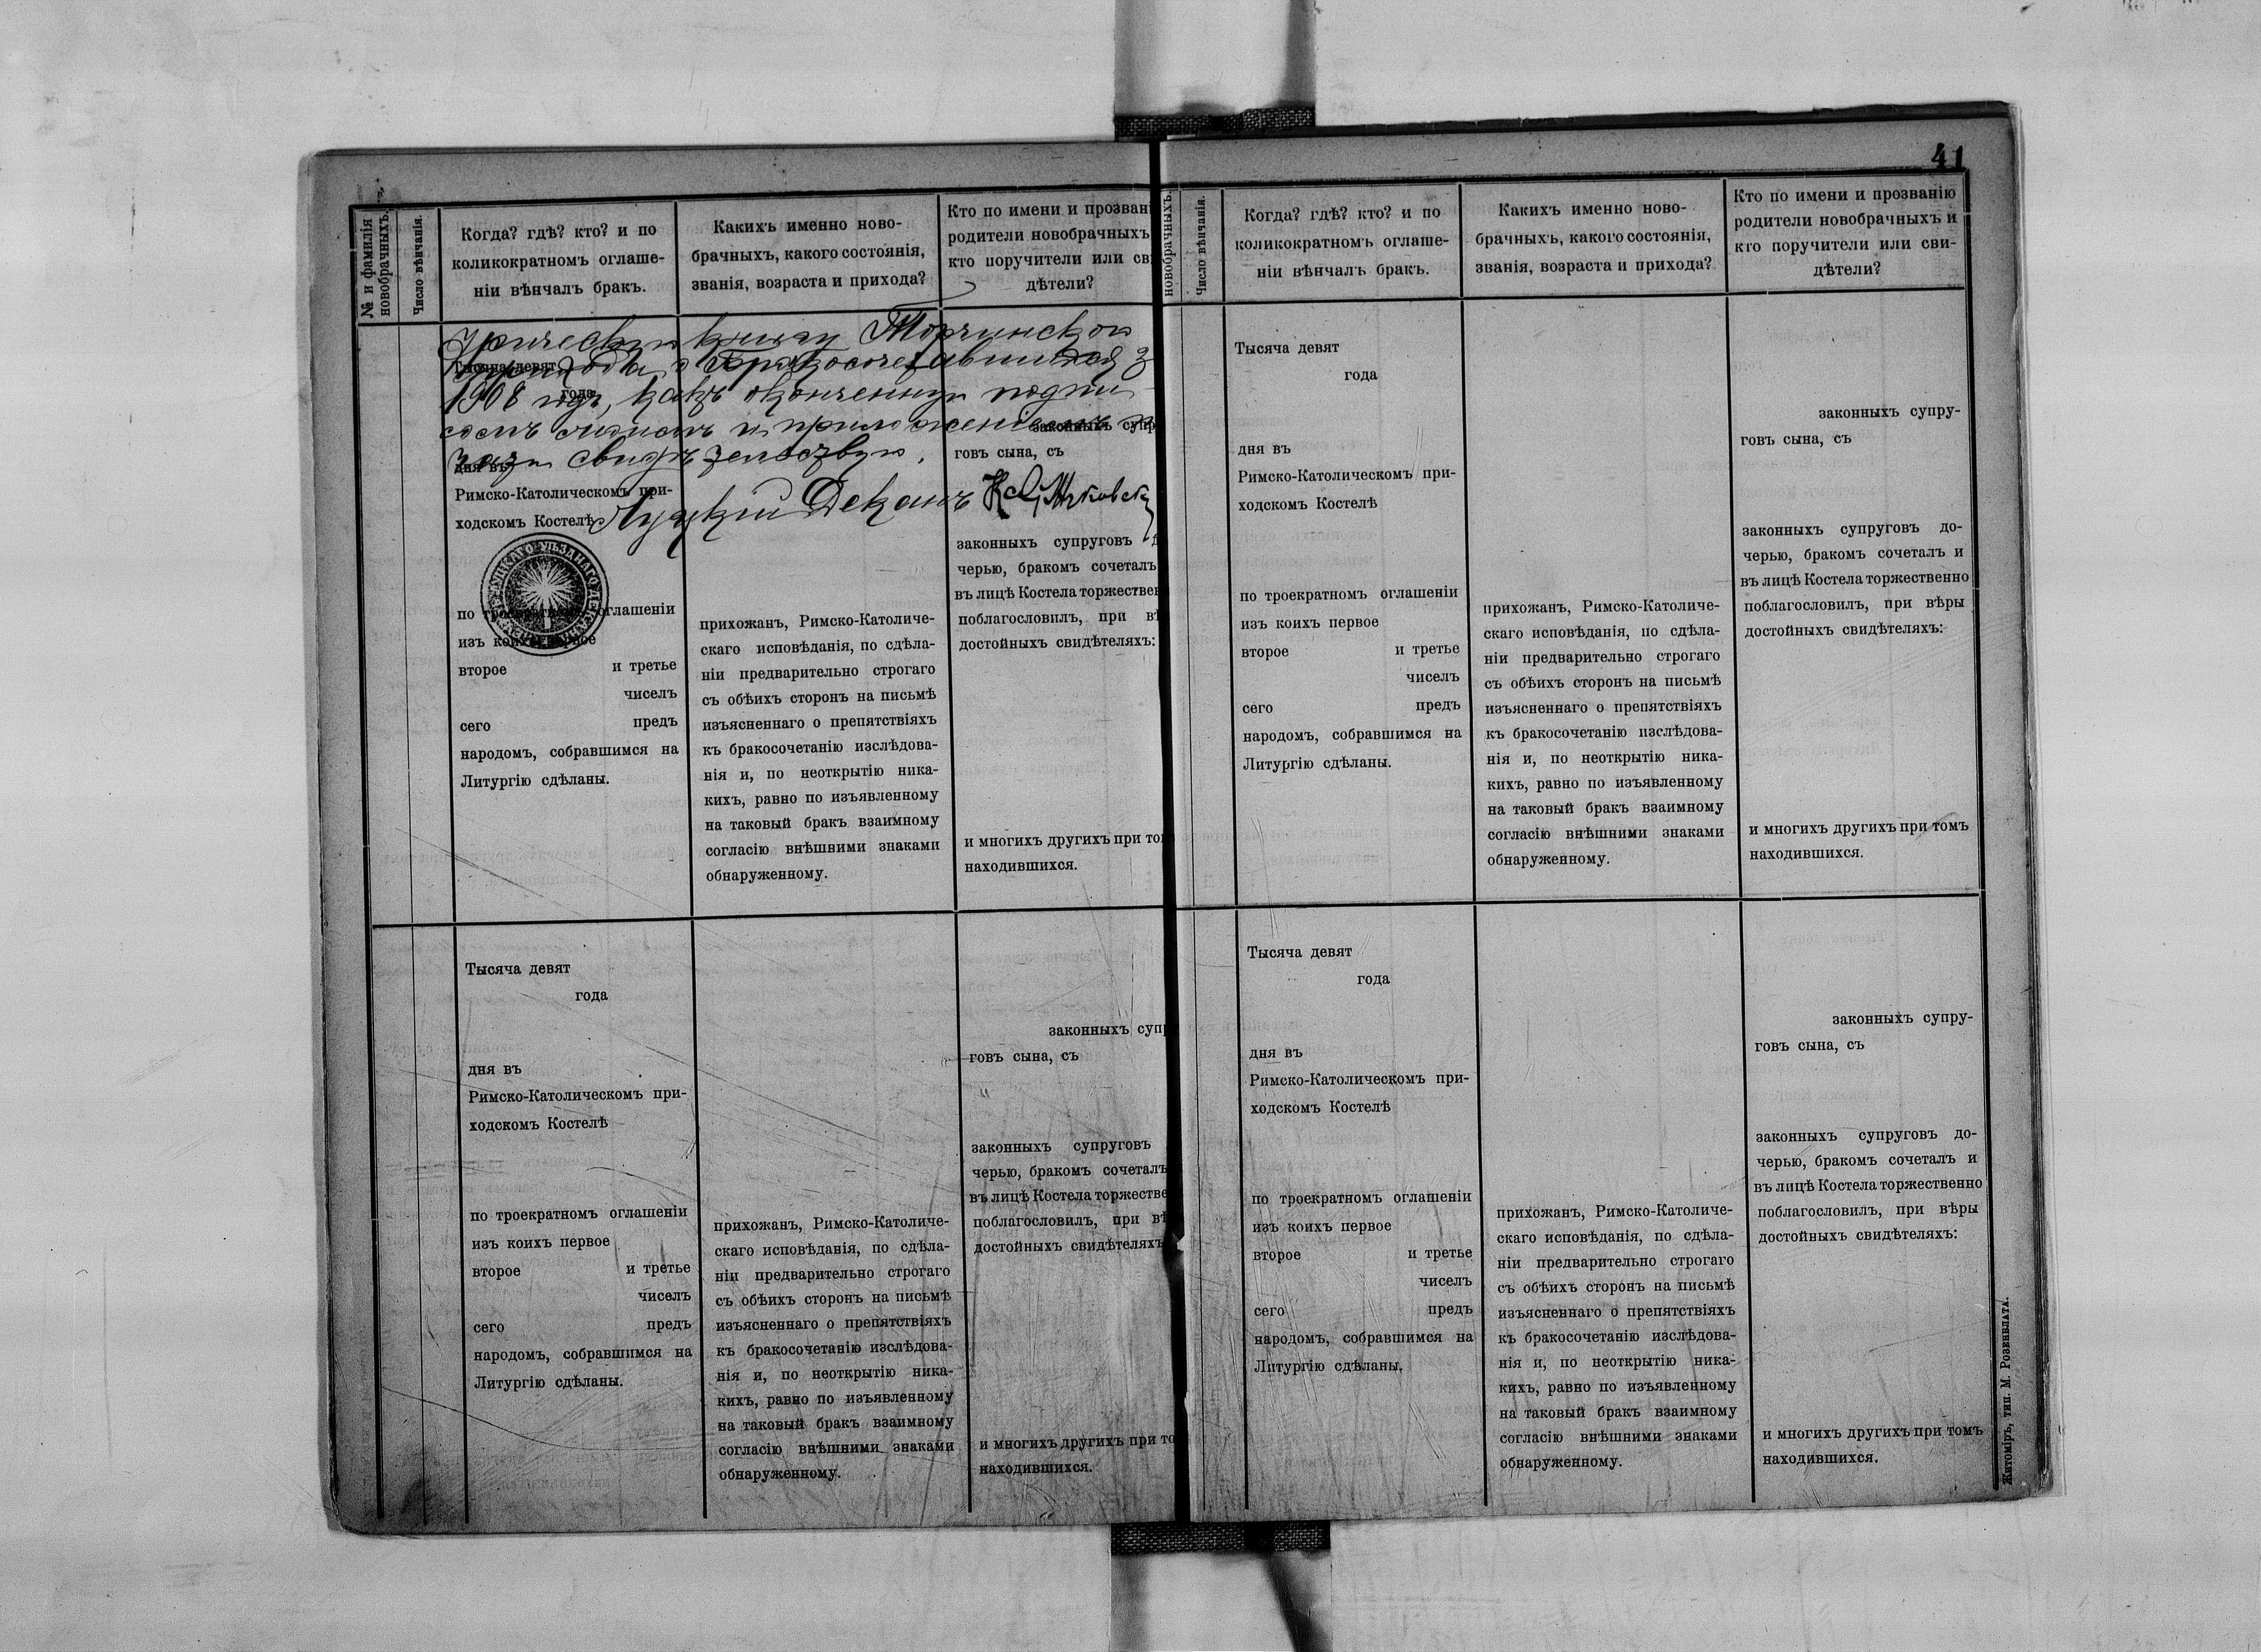 41
№ и фамилія
новобрачныхъ.
Число вѣнчанія.
Когда? гдѣ? кто? и по
коликократномъ оглаше-
ніи вѣнчалъ бракъ.
Какихъ именно ново-
брачныхъ, какого состоянія,
званія, возраста и прихода?
Кто по имени и прозван
родители новобрачныхъ
кто поручители или св
дѣтели?
книгу Торчинской
о бракосочетавшихся з
1908 годъ, какъ оконченную подпи
сомъ моимъ и приложеніемъ
свидѣтельствую.
Луцкій Деканъ
Тысяча девят
года
законныхъ супр
говъ сына, съ
дня въ
Римско-Католическомъ при-
ходскомъ Костелѣ
законныхъ супруговъ
черью, бракомъ сочеталъ
въ лицѣ Костела торжествен
поблагословилъ, при вѣ
достойныхъ свидѣтеляхъ:
по троекратномъ оглашеніи
изъ коихъ первое
второе и третье
чиселъ
сего предъ
народомъ, собравшимся на
Литургію сдѣланы.
прихожанъ, Римско-Католиче-
скаго исповѣданія, по сдѣла-
ніи предварительно строгаго
съ обѣихъ сторонъ на письмѣ
изъясненнаго о препятствіяхъ
къ бракосочетанію изслѣдова-
нія и, по неоткрытію ника-
кихъ, равно по изъявленному
на таковый бракъ взаимному
согласію внѣшними знаками
обнаруженному.
и многихъ другихъ при то
находившихся.
Тысяча девят
года
дня въ
Римско-Католическомъ при-
ходскомъ Костелѣ
по троекратномъ оглашеніи
изъ коихъ первое
второе и третье
чиселъ
сего предъ
народомъ, собравшимся на
Литургію сдѣланы.
прихожанъ, Римско-Католиче-
скаго исповѣданія, по сдѣла-
ніи предварительно строгаго
съ обѣихъ сторонъ на письмѣ
изъясненнаго о препятствіяхъ
къ бракосочетанію изслѣдова-
нія и, по неоткрытію ника-
кихъ, равно по изъявленному
на таковый бракъ взаимному
согласію внѣшними знаками
обнаруженному.
законныхъ суп
говъ сына, съ
законныхъ супруговъ
черью, бракомъ сочеталъ
въ лицѣ Костела торжестве
поблагословилъ, при вѣ
достойныхъ свидѣтеляхъ
и многихъ другихъ при то
находившихся.
новобрачныхъ.
Число вѣнчанія.
Когда? гдѣ? кто? и по
коликократномъ оглаше-
ніи вѣнчалъ бракъ.
Какихъ именно ново-
брачныхъ, какого состоянія,
званія, возраста и прихода?
Кто по имени и прозванію
родители новобрачныхъ и
кто поручители или сви-
дѣтели?
Тысяча девят
года
дня въ
Римско-Католическомъ при-
ходскомъ Костелѣ
по троекратномъ оглашеніи
изъ коихъ первое
второе и третье
чиселъ
сего предъ
народомъ, собравшимся на
Литургію сдѣланы.
прихожанъ, Римско-Католиче-
скаго исповѣданія, по сдѣла-
ніи предварительно строгаго
съ обѣихъ сторонъ на письмѣ
изъясненнаго о препятствіяхъ
къ бракосочетанію изслѣдова-
нія и, по неоткрытію ника-
кихъ, равно по изъявленному
на таковый бракъ взаимному
согласію внѣшними знаками
обнаруженному.
законныхъ супру-
говъ сына, съ
законныхъ супруговъ до-
черью, бракомъ сочеталъ и
въ лицѣ Костела торжественно
поблагословилъ, при вѣры
достойныхъ свидѣтеляхъ:
и многихъ другихъ при томъ
находившихся.
Тысяча девят
года
дня въ
Римско-Католическомъ при-
ходскомъ Костелѣ
по троекратномъ оглашеніи
изъ коихъ первое
второе и третье
чиселъ
сего предъ
народомъ, собравшимся на
Литургію сдѣланы.
прихожанъ, Римско-Католиче-
скаго исповѣданія, по сдѣла-
ніи предварительно строгаго
съ обѣихъ сторонъ на письмѣ
изъясненнаго о препятствіяхъ
къ бракосочетанію изслѣдова-
нія и, по неоткрытію ника-
кихъ, равно по изъявленному
на таковый бракъ взаимному
согласію внѣшними знаками
обнаруженному.
законныхъ супру-
говъ сына, съ
законныхъ супруговъ до-
черью, бракомъ сочеталъ и
въ лицѣ Костела торжественно
поблагословилъ, при вѣры
достойныхъ свидѣтеляхъ:
и многихъ другихъ при томъ
находившихся.
Житоміръ, тип. М. Розенблата.